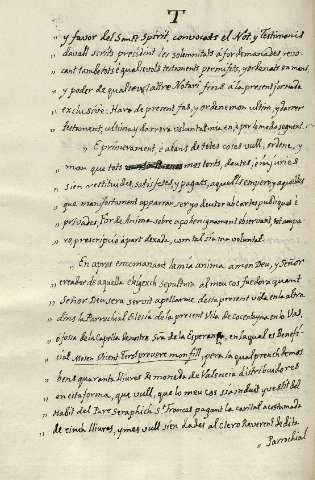 T
„ y favor del Sanct Spirit, convocats el Not. y Testimonis
„ davall scrits, precedint les solemnitats á for demanades revo
„ cant tambe tots é qualsevols testaments per mi fets, y ordenats en mans,
„ y poder de qualsevol altre Notari fins a la present jornada
„ exclusive: Haro de present fas, y ordene mon ultim, y darrer
„ testament, ultima y darrera voluntat mia en, é per lo modo seguent.
„ E primerament é abans de totes coses vull, ordene, y
„ man que tots mos torts, deutes, é injuries
„ sien restituides, satisfetes y pagats, aquells empero y aquelles
„ que manifestament apparra ser yo deutor ab cartes publiques é
„ privades, For de Anima sobre açó benignament observant, tota
„ re prescripció á part dexada, com tal sia ma voluntat.
„ En apres encomanant la mia anima a mon Deu, y Señor
„ creador de aquella elegesch sepultura al meu cos faedora quant
„ Señor Deu sera servit apellarme de esta present vida en la altra
„ dins la Parrochial Eglesia de la present Vila de Cocentayna, en lo Vas,
„ ó fosa de la Capella de Nostra Sra. de la Esperança, en la qual es Benefi-
„ cial Mosen Vicent Ferd prevere mon fill, y pera la qual prench de mos
„ bens quaranta lliures de moneda de Valencia distribuidores
„ en esta forma, que vull, que lo meu cos sia induit y vestit del
„ Habit del Pare Seraphich St. Francés pagant la caritat acostumada
„ de cinch lliures, y mes vull sien dades al Clero Reverent de dita
„ Parrochial